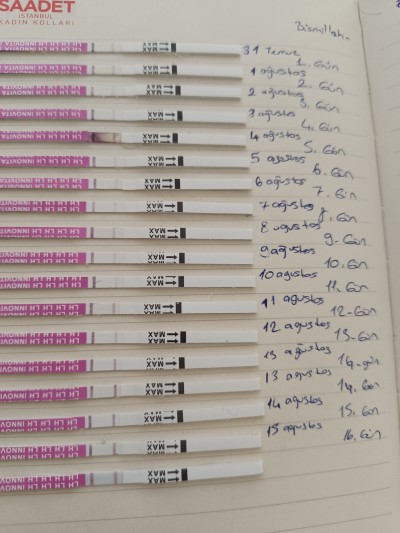 SAADET
İSTANBUL
KADIN KOLLARI
Bismillah
31 Temuz
1. Gün
1 ağustos
2. Gün
2 ağustos
3. Gün
3 ağustos
4. Gün
4 ağustos
5. Gün
5 agustos
6. Gün
6 ağustos
7. Gün
7 ağustos
8. Gün
8 ağustos
9. Gün
9 agustos
10. Gün
10 agustos
11. Gün
11 agustos
12. Gün
12 agustos
13. Gün
13 agustos
14. gün
13 agustos
14. Gün
14 agustos
15. Gün
15 agustos
16. Gün
LH LH LH LH INNOVITA
MAX
MAX